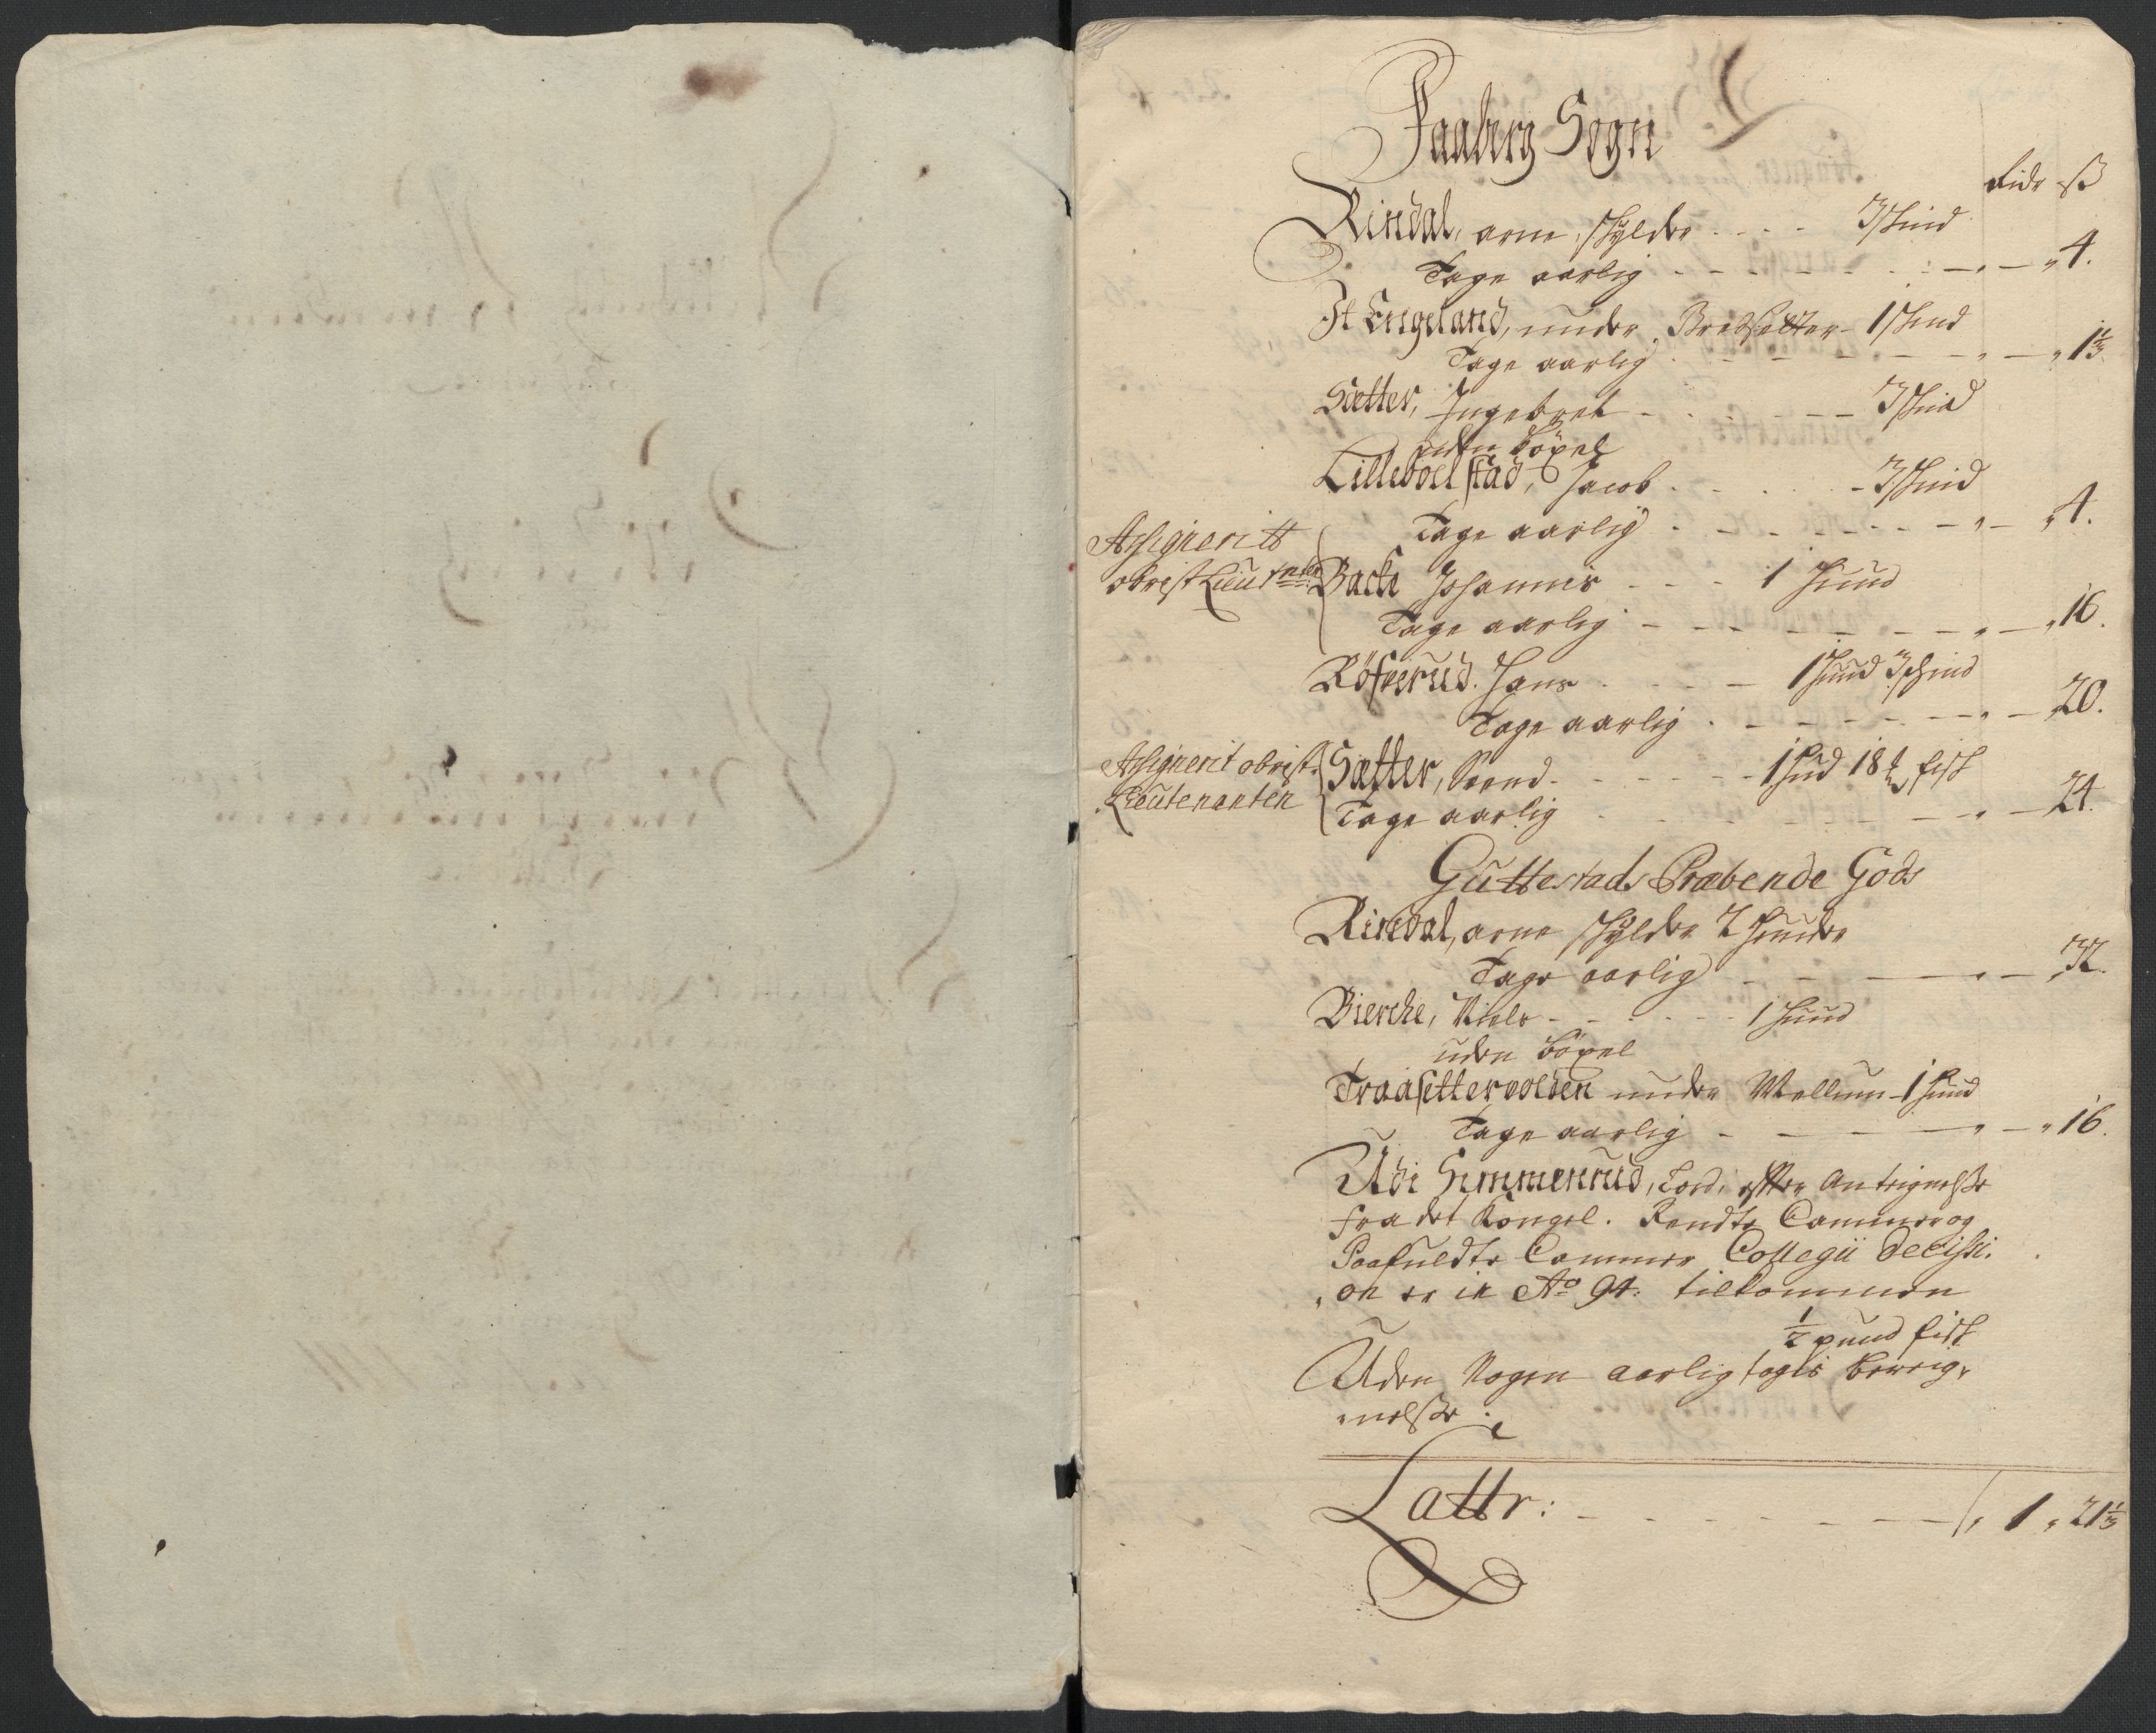 Faaberg Sogn
Ridr ß
Rindal, arne, skylder - - - - 3 skind
Tage aarlig - - - - - - - - 4.
It Engeland, under Bredsetter - 1 skind
Tage aarlig - - - - - - - 1⅓
Sætter, Ingebret - - - - - 3 skind
uden böxel
Lilleböelstad, Jacob - - - - 3 skind
Tage aarlig - - - - - - - 4.
Assignerit
obrist Lieut
Bache Johannes - - - 1 huud
Tage aarlig - - - - - - - 16.
Röfnerud. Hans - - - - 1 huud 3 skind
Tage aarlig - - - - - - - 20.
Assignerit obrist
Lieutenanten
Sætter, Trond - - - - - 1 hud 18 fisk
Tage aarlig - - - - - - - 24.
Guttestads Præbende Gods
Rindal, arne skylder 2 huuder
Tage aarlig - - - - - 32.
Bierche, Niels - - - - - 1 huud
uden böxel
Traasettervolden under Mellum - 1 huud
Tage aarlig - - - - - 16.
Udi Simmenrud, Tord, efter Anteignelße
fra det Kongel. Rendte Cammer og
Paafuldte Cammer Collegii Decissi-
on er in Ao 94. tilkommen
½ pund fisk
Uden Nogen aarlig tages bereig-
nelße.
Lattr: - - - - - - - 1 " 21⅓